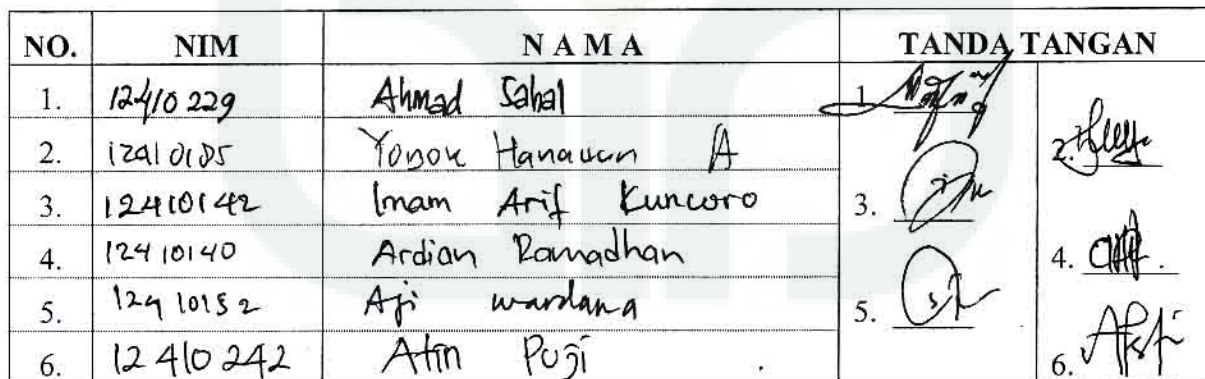 NO. NIM NAMA TANDA TANGAN
1. 12410229 Ahmad Sahal 1.
2. 12410185 Hanawan A 2.
3. 12410142 Imam Arif Kuncoro 3.
4. 12410140 Ardian Ramadhan 4.
5. 12410152 Aji wardana 5.
6. 12410242 Atin Puji 6.